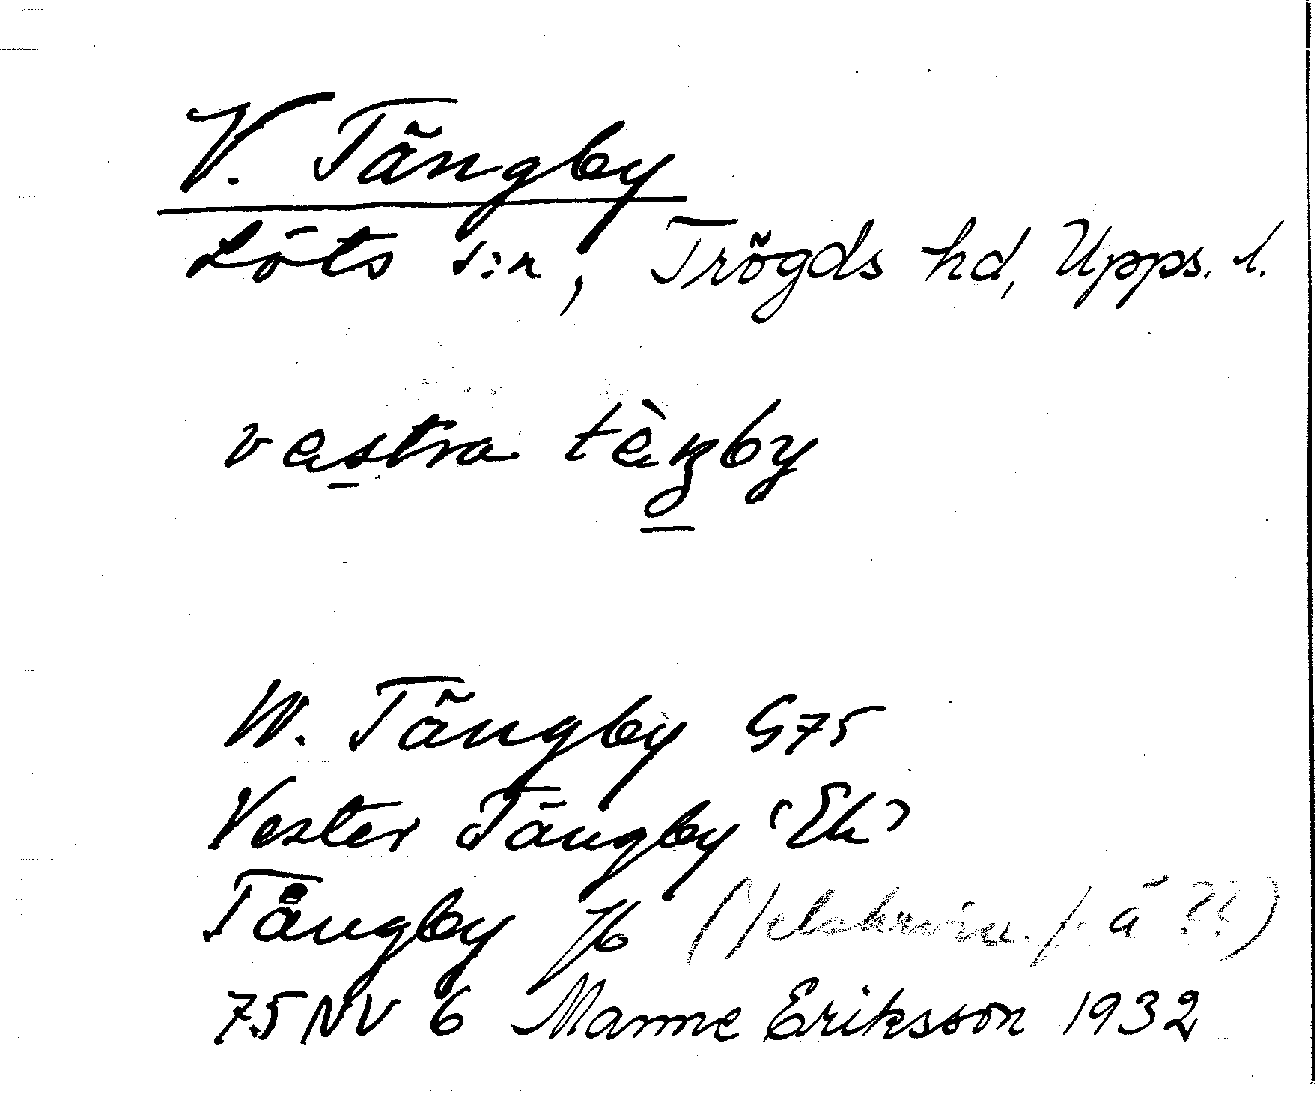 V. Tängby
Löts s:n, Trögds hd, Upps. l.
västra tä̀ŋby
W. Tängby G75
Vester Tängby 'Ek'
Tångby Jb (felskrivn. f. ä ??)
75 NV 6 Manne Eriksson 1932